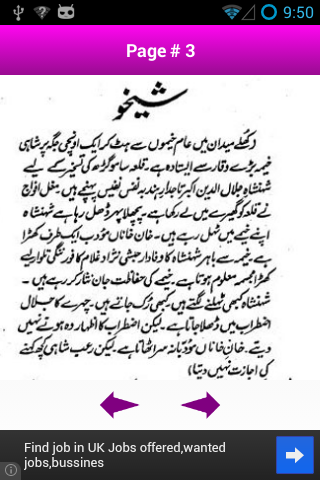 9:50
Page # 3
شیخو
(کھلے میدان میں عام خیموں سے ہٹ کر ایک اونچی جگہ پر شاہی
خیمہ بڑے وقار سے ایستادہ ہے۔ قلعہ ساموگڑھ کی تسخیر کے لیے
شہنشاہ جلال الدین اکبر تاجدارِ ہند بہ نفسِ نفیس پہنچے ہیں۔ مغل افواج
نے قلعہ کو گھیرے میں لے رکھا ہے۔ پچھلا پہر ڈھل رہا ہے شہنشاہ
اپنے خیمے میں ٹہل رہے ہیں۔ خانِ خاناں مؤدب ایک طرف کھڑا
ہے۔ خیمہ سے باہر شہنشاہ کا وفادار حبشی نژاد غلام کافور ننگی تلوار لیے
کھڑا مجسمہ معلوم ہوتا ہے۔ خیمے کی حفاظت جان نثار کر رہے ہیں۔
شہنشاہ کبھی ٹہلنے لگتے ہیں، کبھی رُک جاتے ہیں۔ چہرے کا جلال
اضطراب میں ڈھلا جاتا ہے۔ لیکن اضطراب کا اظہار وہ ہونے نہیں
دیتے۔ خانِ خاناں مؤدبانہ سر اٹھاتا ہے۔ لیکن رعبِ شاہی کچھ کہنے
کی اجازت نہیں دیتا)
Find job in UK Jobs offered,wanted
jobs,bussines